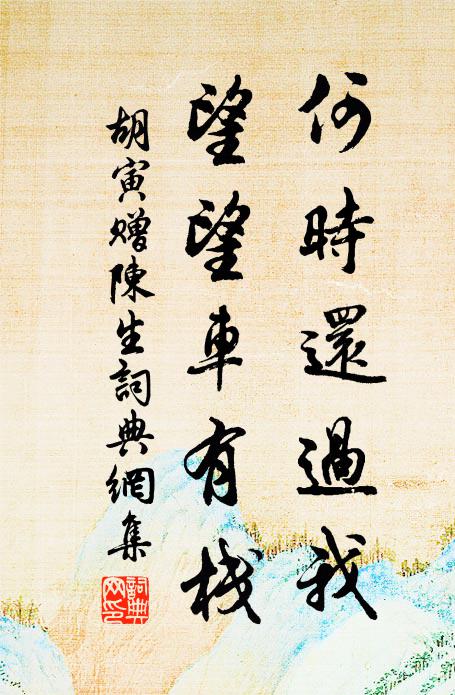 何時還過我
望望車有棧
胡寅贈陳生詞典網集